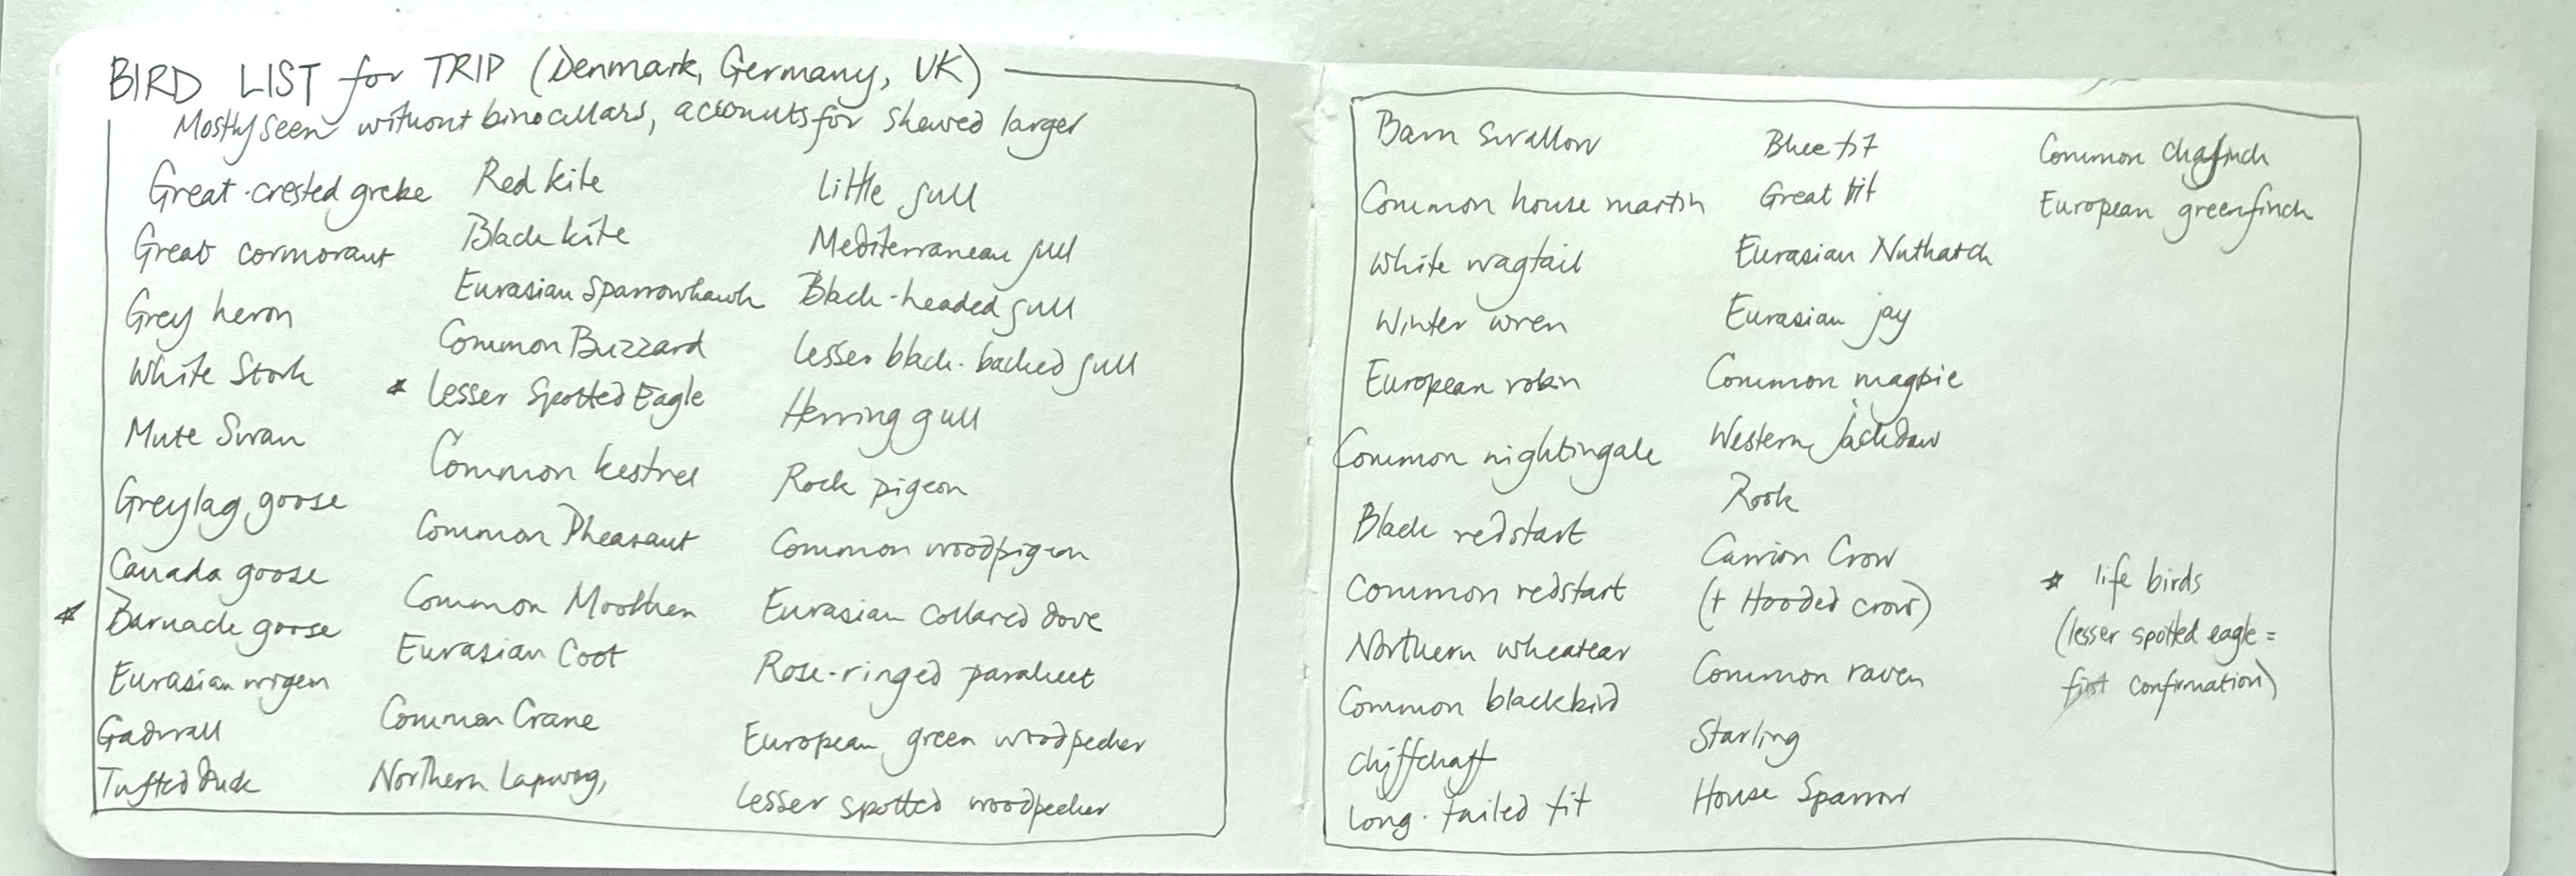 BIRD LIST for TRIP (Denmark, Germany, UK)
Mostly seen without binocullars, accounts for skewed larger
Great-crested grebe
Great cormorant
Grey heron
White Stork
Mute Swan
Greylag goose
Canada goose
* Barnacle goose
Eurasian wigeon
Gadwall
Tufted duck
Red kite
Black kite
Eurasian Sparrowhawk
Common Buzzard
* Lesser Spotted Eagle
Common kestrel
Common Pheasant
Common Moorhen
Eurasian Coot
Common Crane
Northern Lapwing,
Little gull
Mediterranean gull
Black-headed gull
Lesser black-backed gull
Herring gull
Rock pigeon
Common woodpigeon
Eurasian Collared dove
Rose-ringed parakeet
European green woodpecker
Lesser spotted woodpecker
Barn swallow
Common house martin
White wagtail
Winter wren
European robin
Common nightingale
Black redstart
Common redstart
Northern wheatear
Common blackbird
Chiffchaff
Long-tailed tit
Blue tit
Great tit
Eurasian Nuthatch
Eurasian jay
Common magpie
Western jackdaw
Rook
Carrion Crow
(+ Hooded crow)
Common raven
Starling
House Sparrow
Common chaffinch
European greenfinch
* life birds
(lesser spotted eagle =
first confirmation)